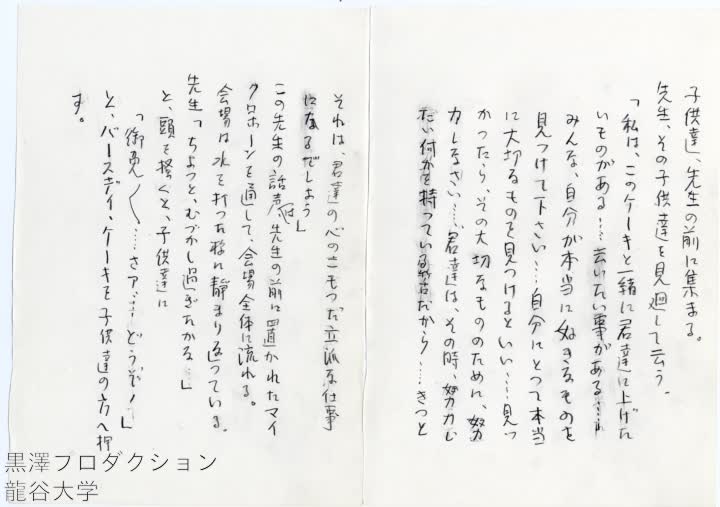 子供達、先生の前に集まる。
先生、その子供達を見廻して云う。
「私は、このケーキと一緒に君達に上げた
いものがある……云いたい事がある……
みんな、自分が本当に好きなものを
見つけて下さい……自分にとって本当
に大切なものを見つけるといい……見つ
かったら、その大切なもののために、努
力しなさい……君達は、その時、努力し
たい何かを持っている筈だから……きっと
それは、君達の心のこもった立派な仕事
になるでしょう」
この先生の話声は先生の前に置かれたマイ
クロホーンを通して、会場全体に流れる。
会場は水を打った様に静まり返っている。
先生「ちょっと、むづかし過ぎたかな…」
と、頭を掻くと、子供達に
「御免〱……さア……どうぞ!」
と、バースデイ・ケーキを子供達の方へ押
す。
黒澤プロダクション
龍谷大学